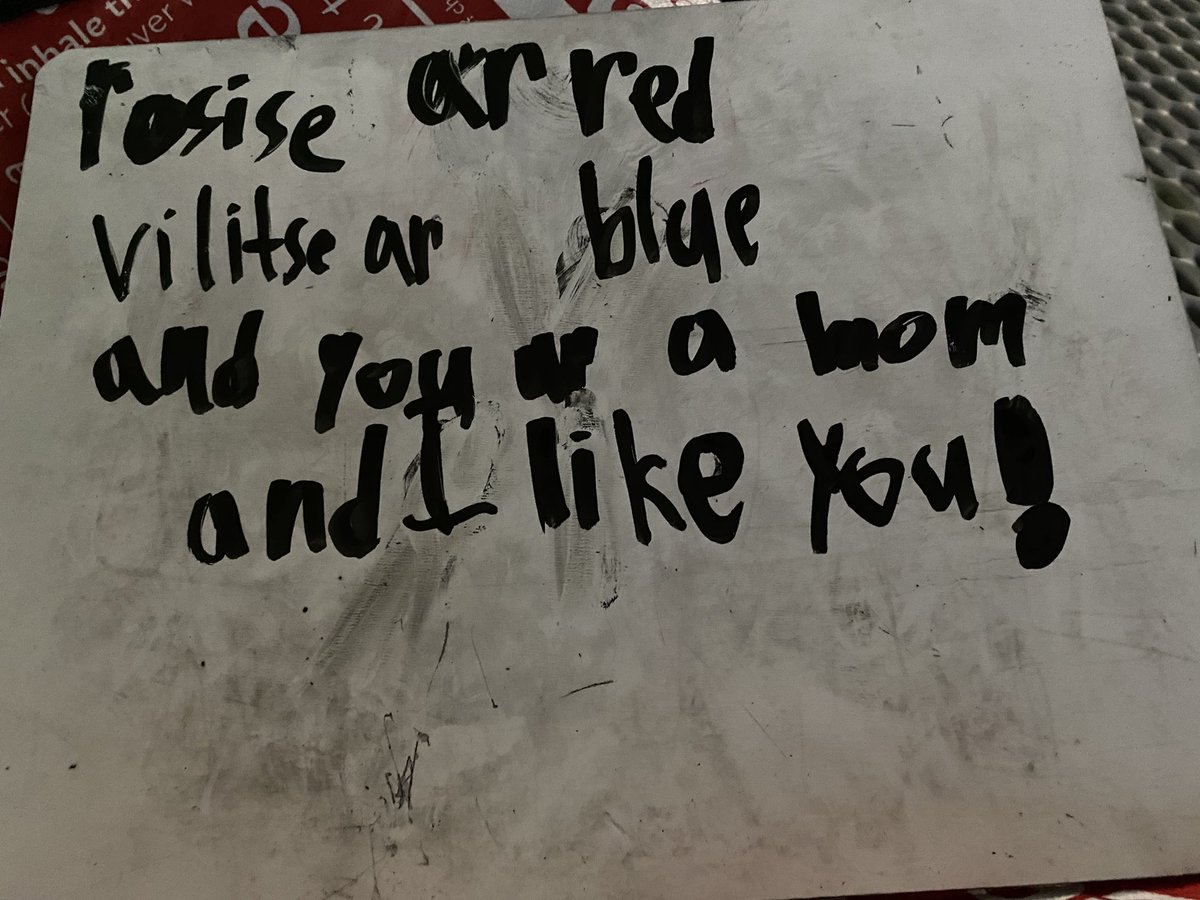 inhale th
uver
rosise ar red
vilitse ar blue
and you ar a mom
and I like you!